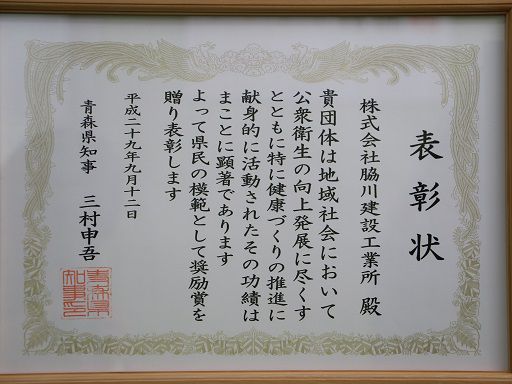 表彰状
株式会社脇川建設工業所 殿
貴団体は地域社会において
公衆衛生の向上発展に尽くす
とともに特に健康づくりの推進に
献身的に活動されたその功績は
まことに顕著であります
よって県民の模範として奨励賞を
贈り表彰します
平成二十九年九月十二日
青森県知事 三村申吾
青森県
知事印